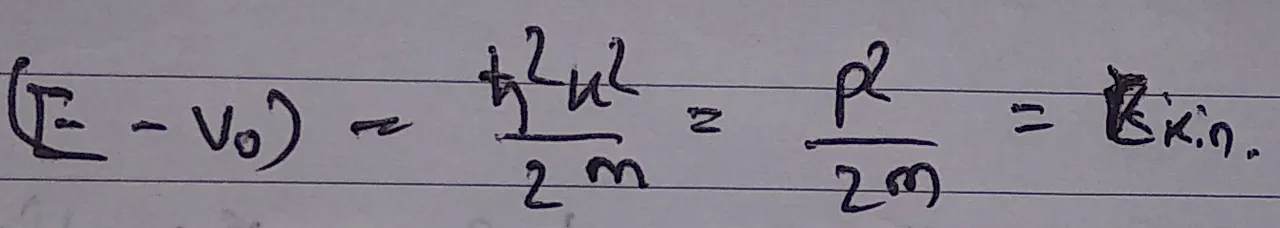 (E - V₀) = ħ²k²/2m = p²/2m = Ekin.